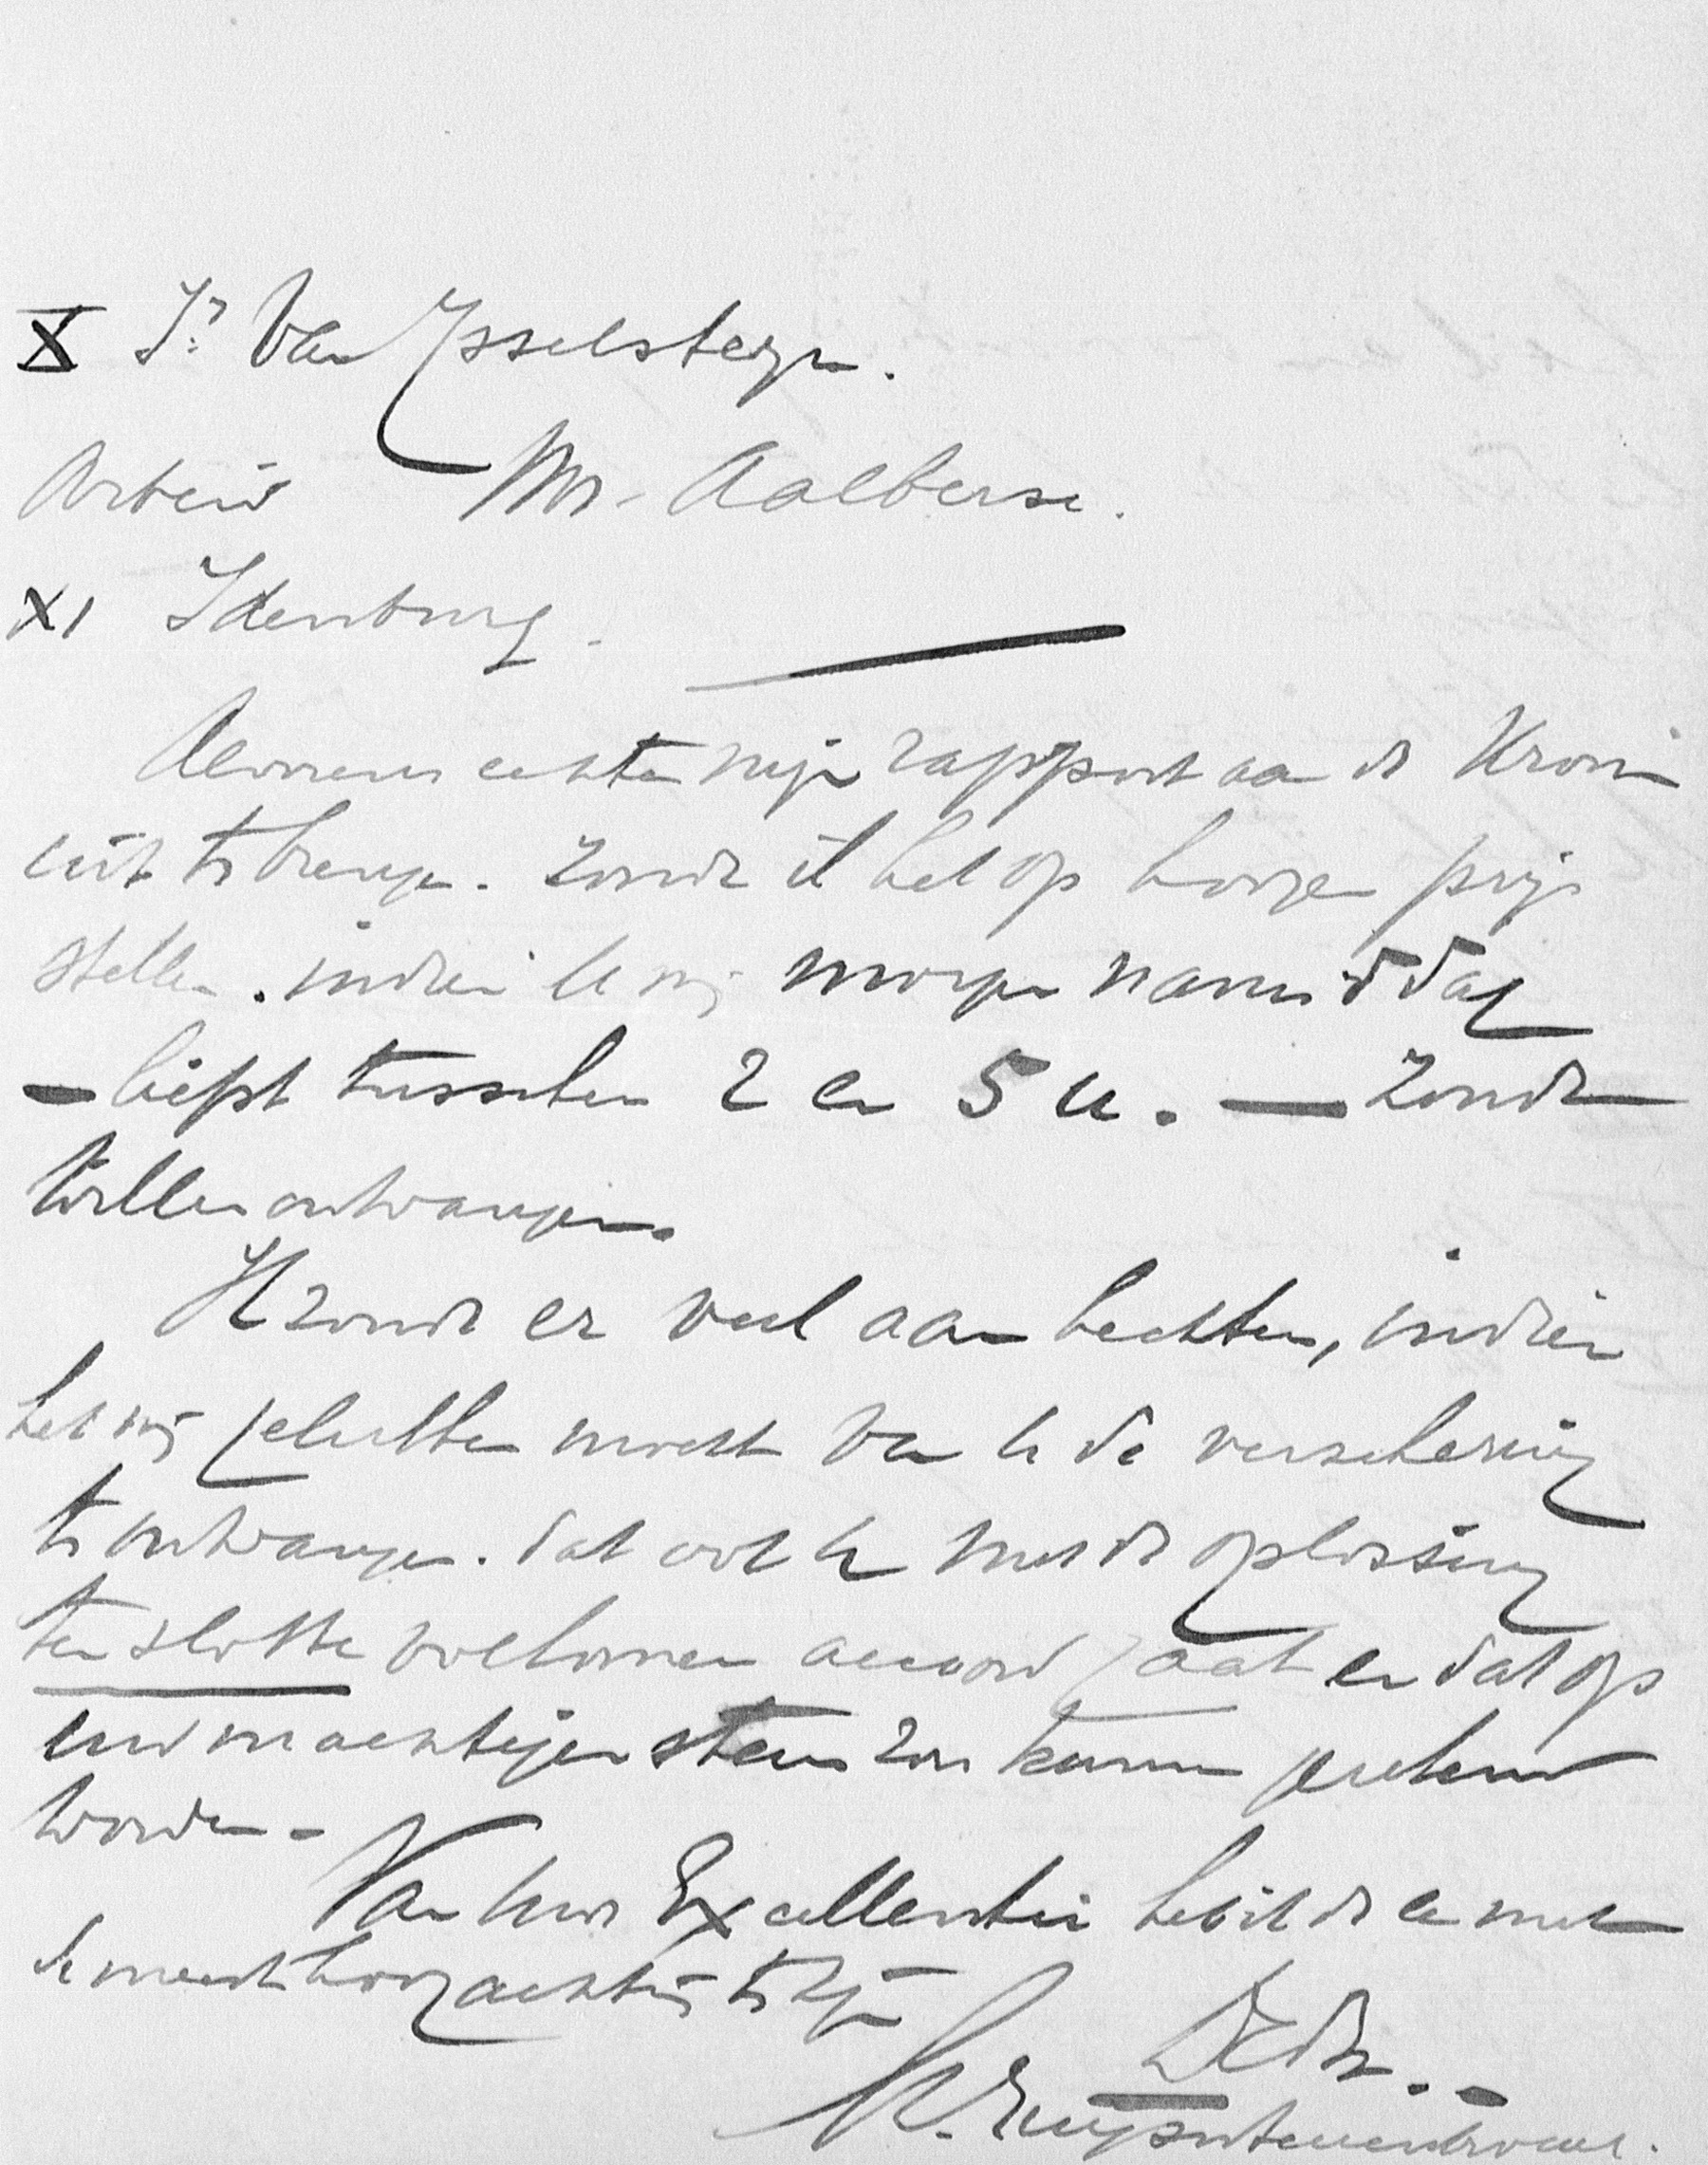 X Jr. Van IJsselsteyn.
Arbeid Mr. Aalberse.
XI Idenburg.
Alvorens echter mijn rapport aan de Kroon
uit te brengen. zoude ik het op hoogen prijs
stellen. indien U mij morgen namiddag
- liefst tusschen 2 en 5 u. - zoude
willen ontvangen.
Ik zoude er veel aan hechten, indien
het mij gelukken mocht van U de verzekering
te ontvangen. dat ook U met de oplossing
ten slotte volkomen accoord gaat en dat op
uw machtigen steun zou kunnen gerekend
worden -
Van Uwe Excellentie heb ik de eer met
de meeste hoogachting te zijn
DWDr. -
Ch. Ruijs de Beerenbrouck.